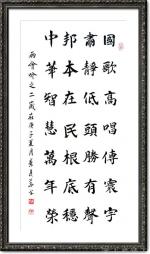 國歌高唱傳寰宇
肅靜低頭勝有聲
邦本在民根底穩
中華智慧萬年榮
兩會吟之二歲在庚子夏月